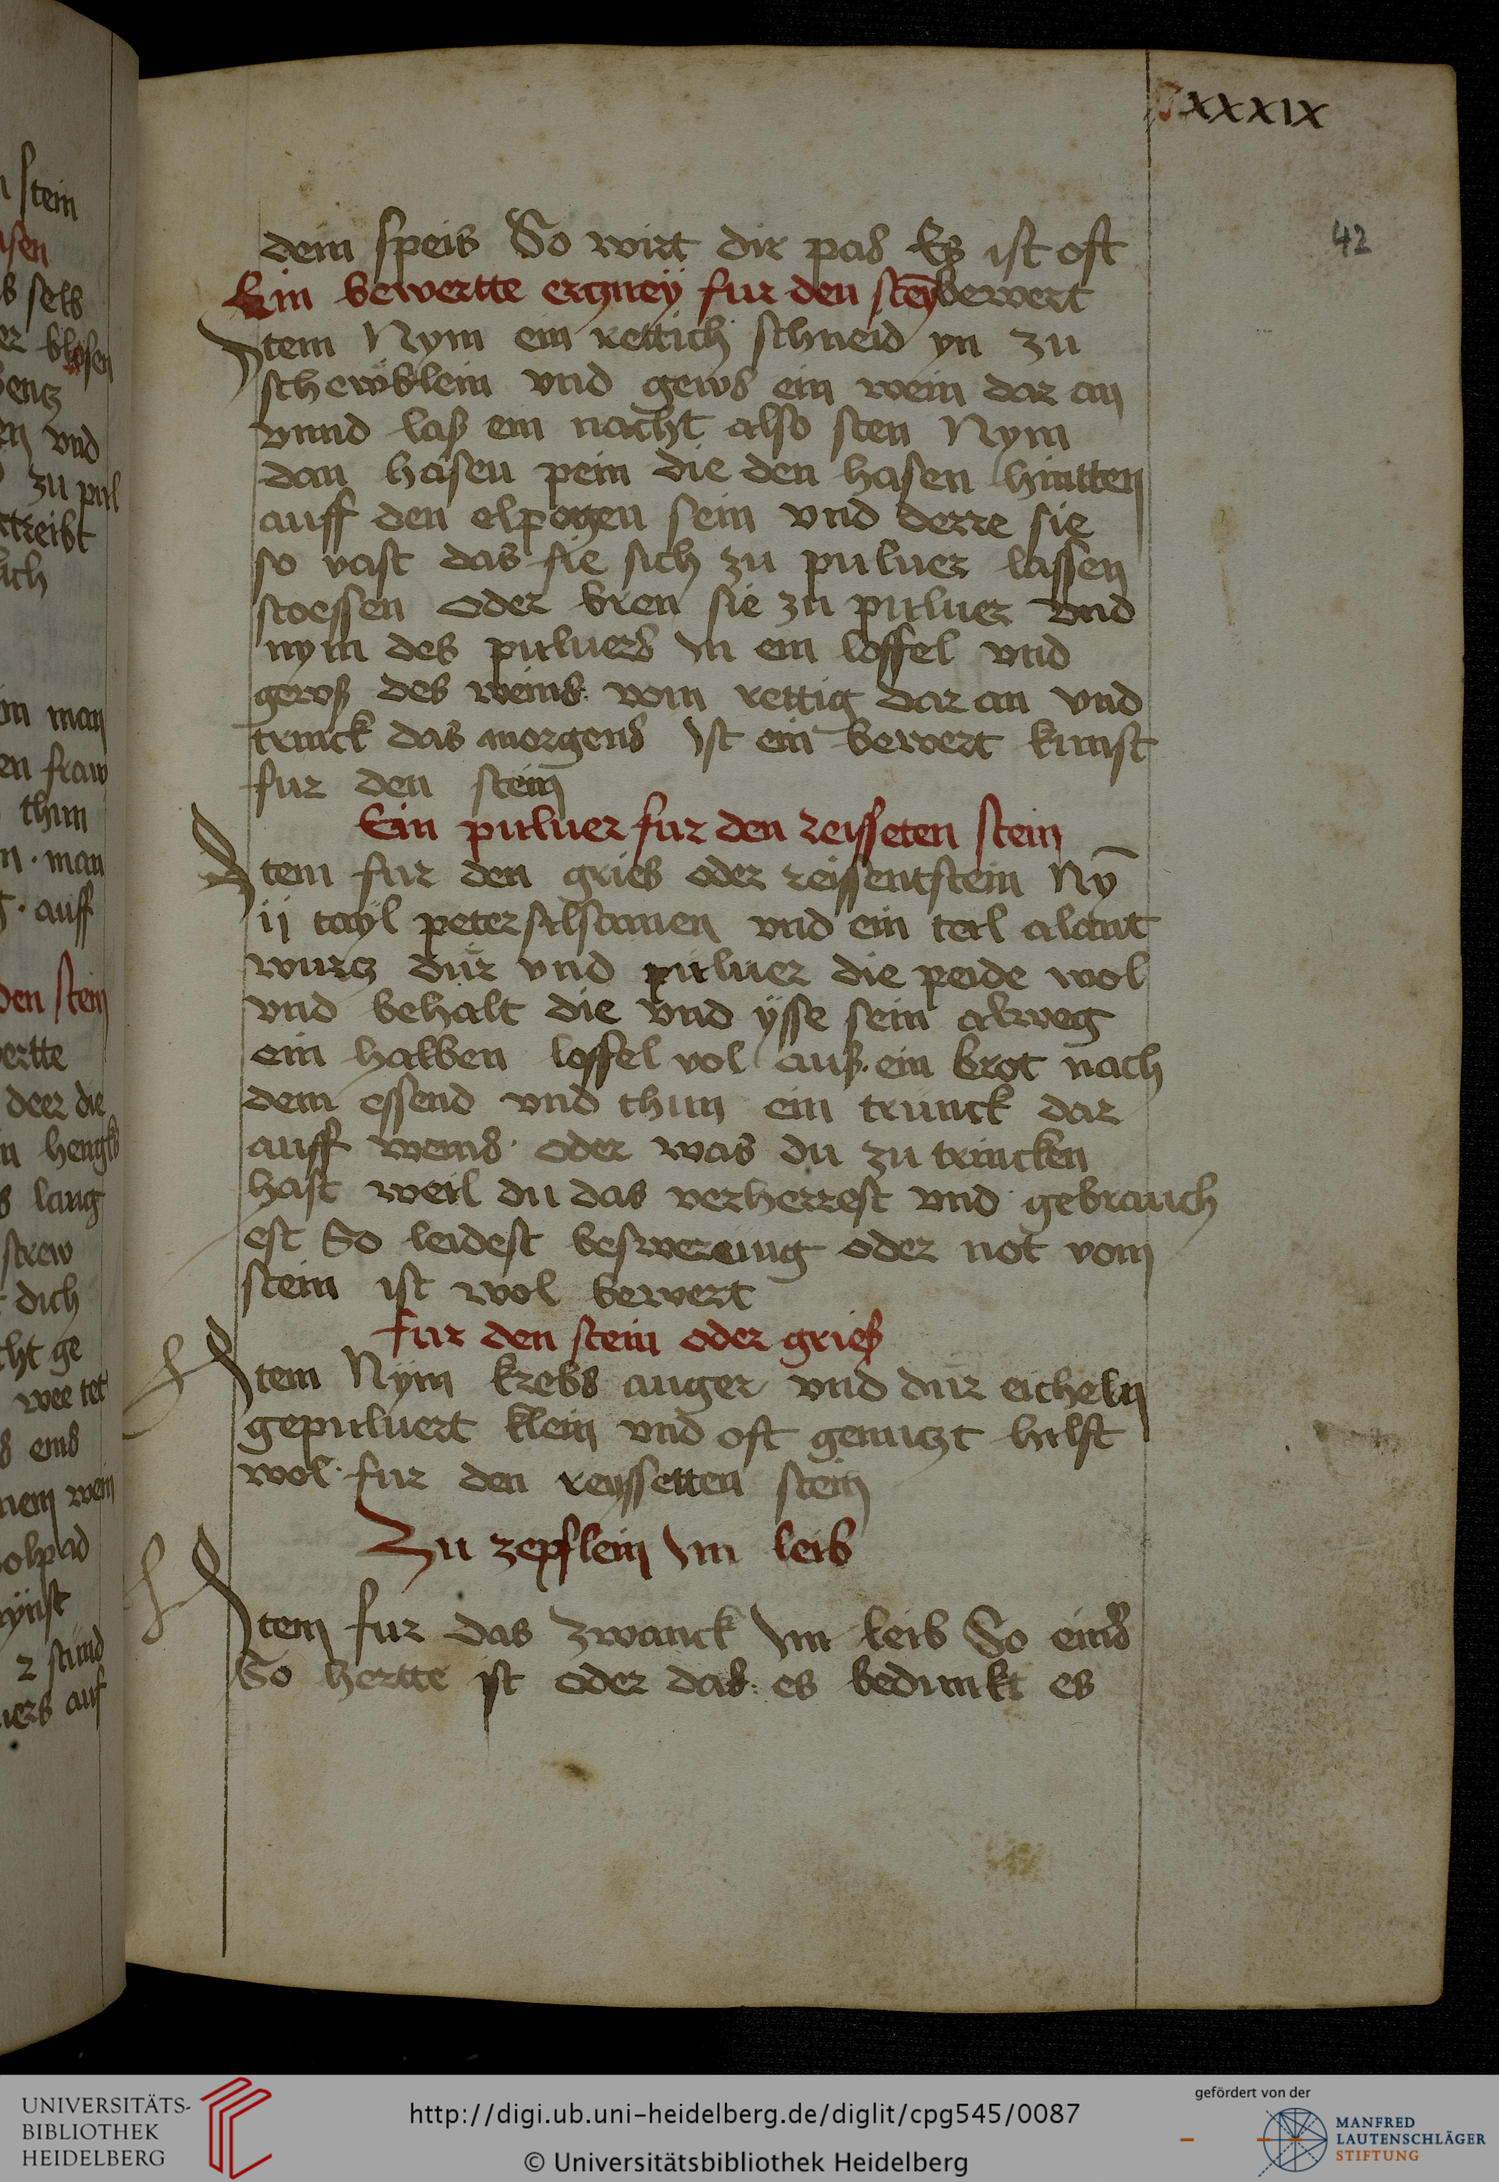 xxxix
42
dein speis So wirt dir pas Es ist oft
Ein bewertte erczney fur den steÿ bewert
Item Nym ein rettich schneid yn zu
schewblein vnd gews ein wein dar an
vnnd laß ein nacht also sten Nym
dan hasen pein die den hasen hintten
auff den elpogen sein vnd derre sie
so vast das sie sich zu puluer lassen
stoessen oder bren sie zu puluer vnd
nym des puluers In ein loffel vnd
gewß des weins vom rettig dar an vnd
trinck das morgens Ist ein bewert kunst
fur den stein
Ein puluer fur den reisseten stein
Item fur den gries oder reissentstein Nȳ
ij tayl petersilsamen vnd ein teil alant
wurcz dur vnd puluer die peide wol
vnd behalt die vnd ysse sein alweg
ein halben loffel vol auß ein brot nach
dem essend vnd thun ein trunck dar
auff weins oder was du zu trincken
hast weil du das verherrest vnd gebrauch
est So leidest beswerung oder not vom
stein ist wol bewert
fur den stein oder grieß
Item Nym krebs auger vnd dur eicheln
gepuluert klein vnd oft genuczt hilft
wol fur den reyssetten stein
Zu zepflein Im leib
Item fur das zwanck Im leib So eins
So hertte ist oder das es bedunkt es
n stein
sels
blosen
vnd
zu pul
treibt
ich
man
fraw
thun
man
auff
den stein
ertte
die
lang
strew
dich
ge
wee tet
wein
stund
auf
UNIVERSITÄTS-
BIBLIOTHEK
HEIDELBERG
http://digi.ub.uni-heidelberg.de/diglit/cpg545/0087
© Universitätsbibliothek Heidelberg
gefördert von der
MANFRED
LAUTENSCHLÄGER
STIFTUNG